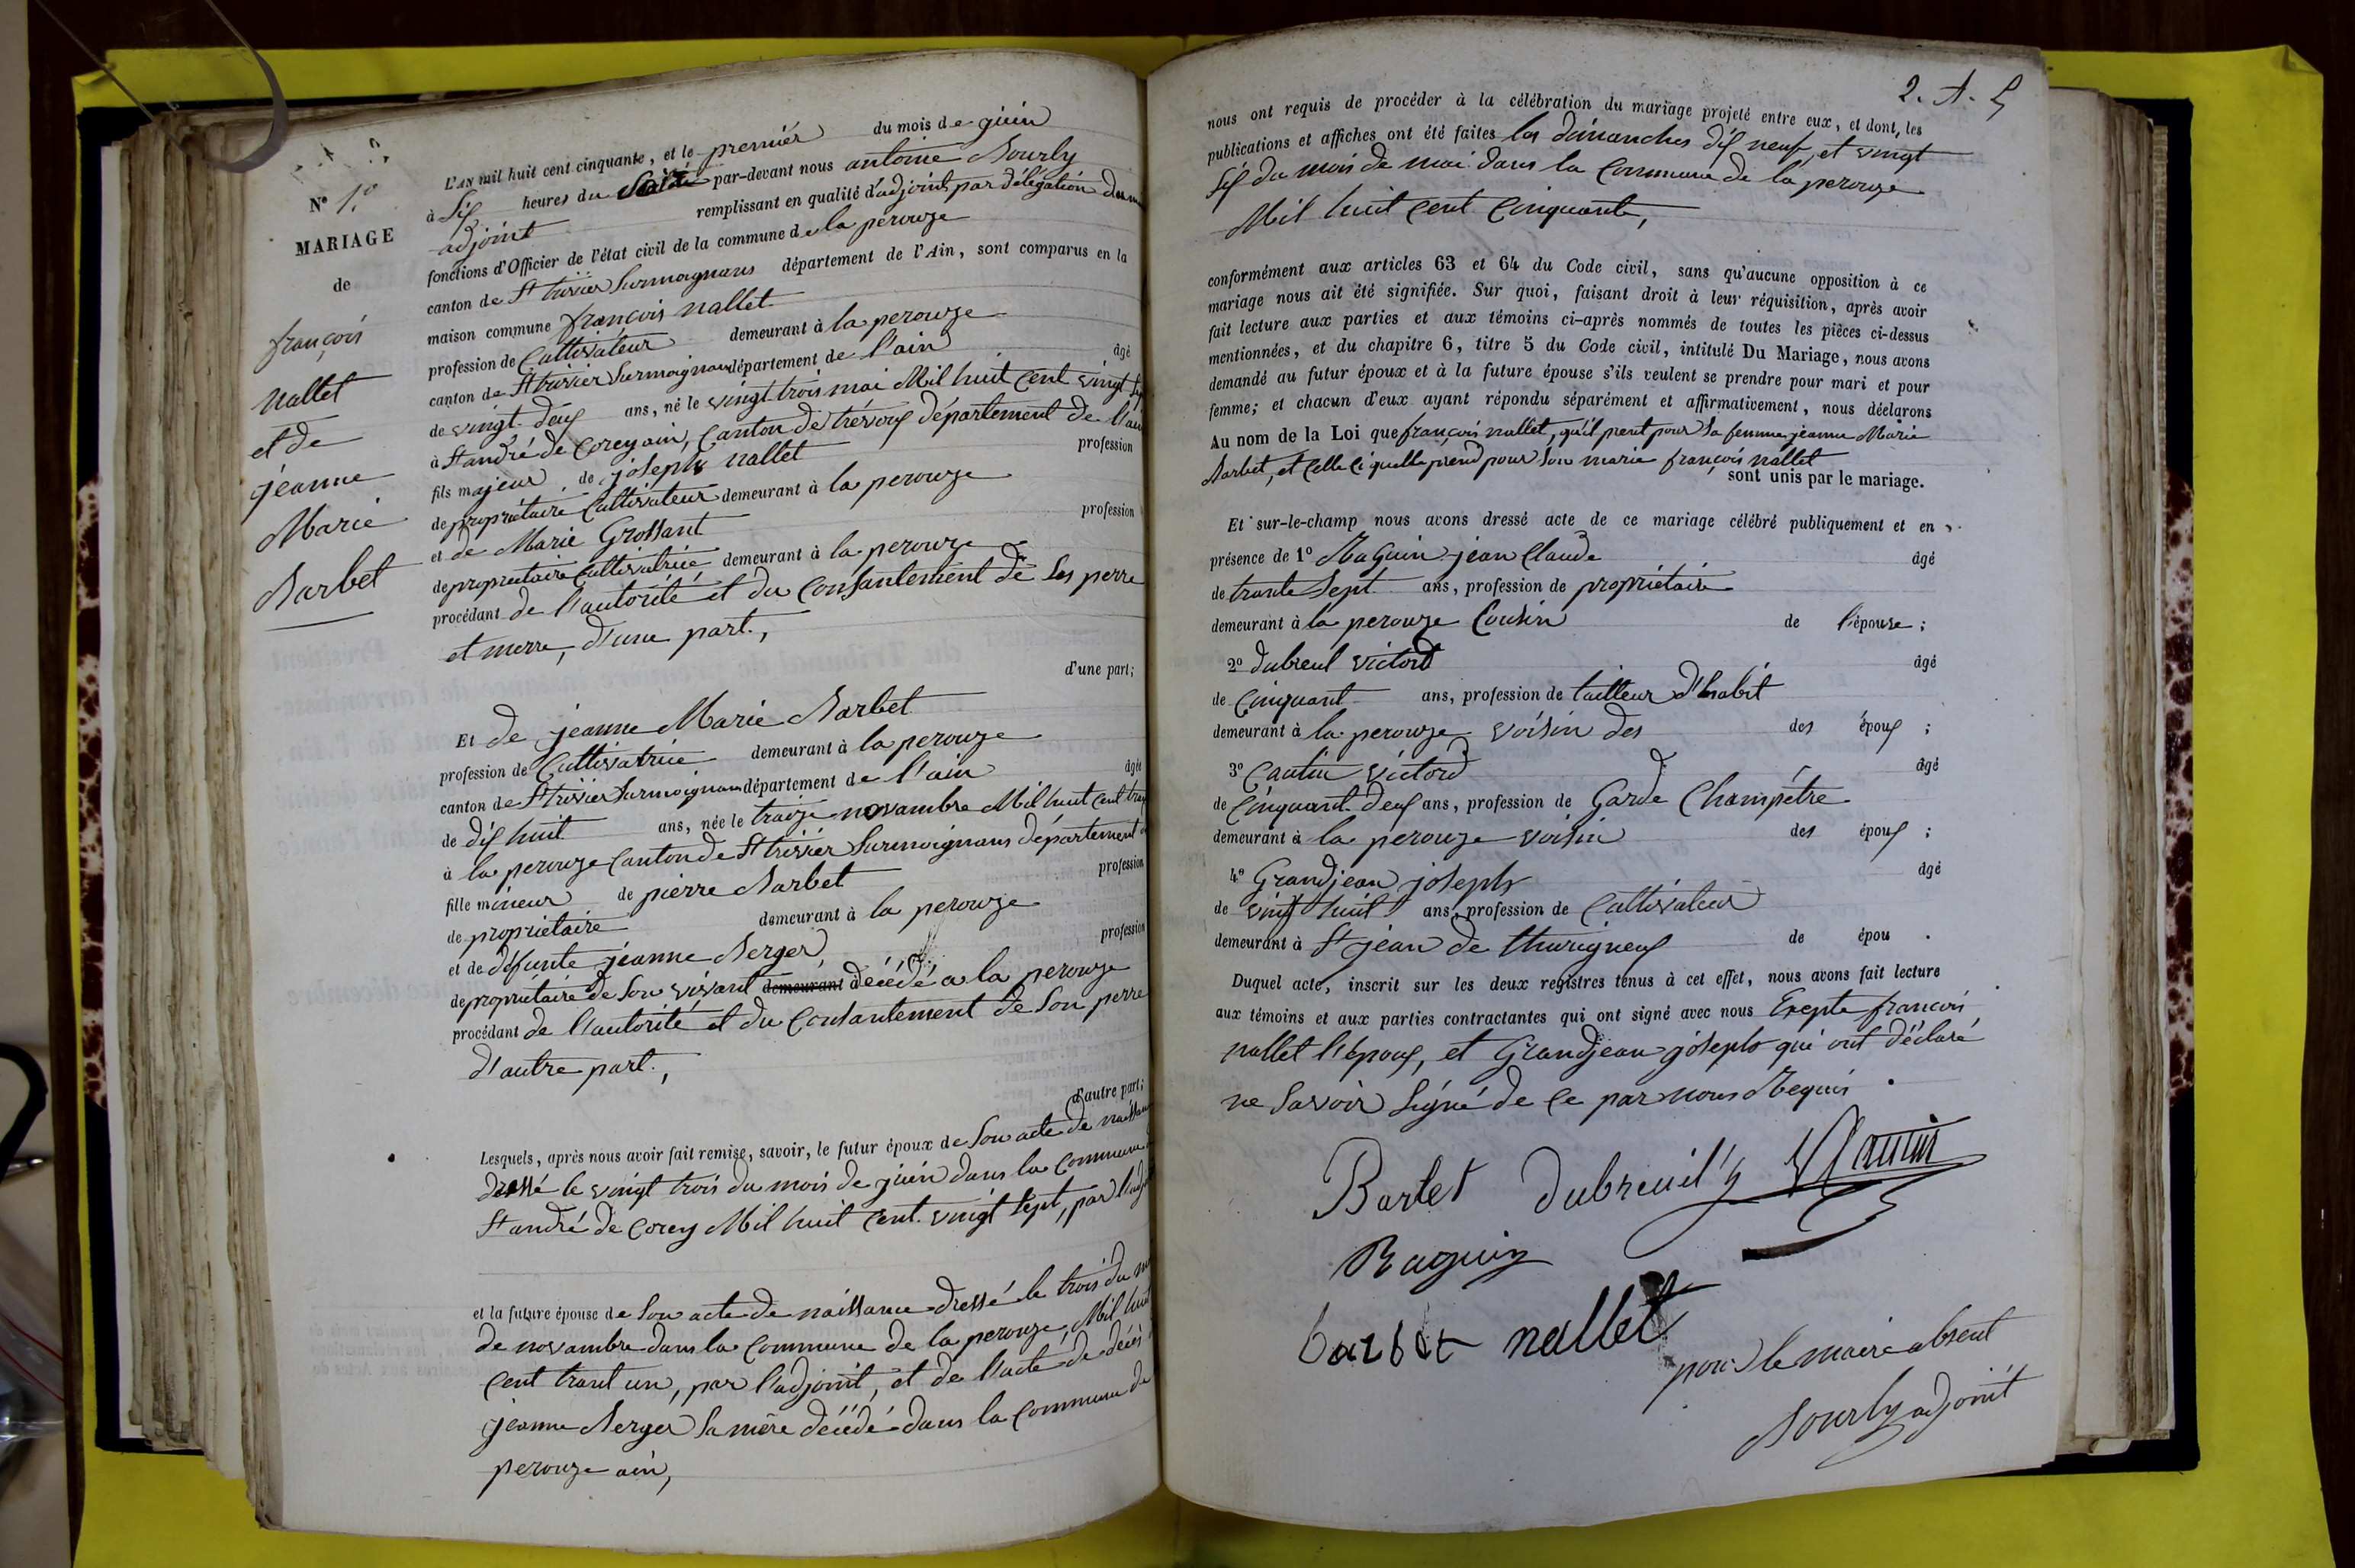 N° 1.er
MARIAGE
de
françois
nallet
et de
jeanne
Marie
Barbet
L'AN mil huit cent cinquante, et le premiér du mois de juin
à Six heures du par-devant nous antoine Bourly
adjoint remplissant en qualité d'adjoint par délégation du
fonctions d'Officier de l'état civil de la commune de la pérouze
canton de St trivier Surmoignans département de l'Ain, sont comparus en la
maison commune françois nallet
profession de Cultivateur demeurant à la perouze
canton de St trivier Surmoignans département de l'ain âgé
de vingt-deux ans, né le vingt trois mai Mil huit Cent vingt
à St andré de Corcy ain, Canton de trévoux département de l'ain
fils majeur de joseph nallet profession
de propriétaire Cultivateur demeurant à la perouze
et de Marie Grossant profession
de propriétaire Cultivatrice demeurant à la perouze
procédant de l'autorité et du Consantement de Ses perre
et merre, d'une part.,
d'une part;
Et de jeanne Marie Barbet
profession de Cultivatrice demeurant à la perouze
canton de St trivier Surmoignans département de l'ain âgée
de dix huit ans, née le traize novambre Mil huit Cent
à la perouze Canton de St trivier Surmoignans département
fille mineur de pierre Barbet profession
de propriétaire demeurant à la perouze
et de défunte jeanne Berger profession
de propriétaire de Son vivant demeurant décédé a la perouze
procédant de l'autorité et du Consantement de Son perre
d'autre part.,
d'autre part;
Lesquels, après nous avoir fait remise, savoir, le futur époux de Son acte de naissance
dressé le vingt trois du mois de juin dans la Commune
St andré de Corcy Mil huit Cent vingt sept, par l'adjoint
et la future épouse de Son acte de naissance dressé le trois du
de novambre dans la Commune de la perouze, Mil huit
Cent trant un, par l'adjoint, et de l'acte de décès
jeanne Berger Sa mère décédé dans la Commune de
perouze ain,
nous ont requis de procéder à la célébration du mariage projeté entre eux, et dont les
publications et affiches ont été faites les dimanches dix neuf, et vingt
Six du mois de mai dans la Commune de la perouze
Mil huit Cent Cinquante,
conformément aux articles 63 et 64 du Code civil, sans qu'aucune opposition à ce
mariage nous ait été signifiée. Sur quoi, faisant droit à leur réquisition, après avoir
fait lecture aux parties et aux témoins ci-après nommés de toutes les pièces ci-dessus
mentionnées, et du chapitre 6, titre 5 du Code civil, intitulé Du Mariage, nous avons
demandé au futur époux et à la future épouse s'ils veulent se prendre pour mari et pour
femme; et chacun d'eux ayant répondu séparément et affirmativement, nous déclarons
Au nom de la Loi que françois nallet, qu'il prent pour Sa femme jeanne Marie
Barbet, et Celle Ci quelle prend pour Son marie françois nallet
sont unis par le mariage.
Et sur-le-champ nous avons dressé acte de ce mariage célébré publiquement et en
présence de 1° Raguin jean Claude âgé
de trante Sept ans, profession de propriétaire
demeurant à la perouze Cousin de l'épouse;
2° dubreul victord âgé
de Cinquant ans, profession de tailleur d'habit
demeurant à la perouze voisin des des époux;
3° Cautin victord âgé
de Cinquant-deux ans, profession de Garde Champétre
demeurant à la perouze voisin des époux;
4° Grandjean joseph âgé
de vint huit ans, profession de Cultivateur
demeurant à St jean de thurigneux de épou .
Duquel acte, inscrit sur les deux registres tenus à cet effet, nous avons fait lecture
aux témoins et aux parties contractantes qui ont signé avec nous Exepte francois
nallet l'époux, et Grandjean joseph qui ont déclaré
ne Savoir Signé de Ce par nous Requis
Barbet dubreuil
Raguin
barbet nallet
pour le maire absent
Bourly adjoint